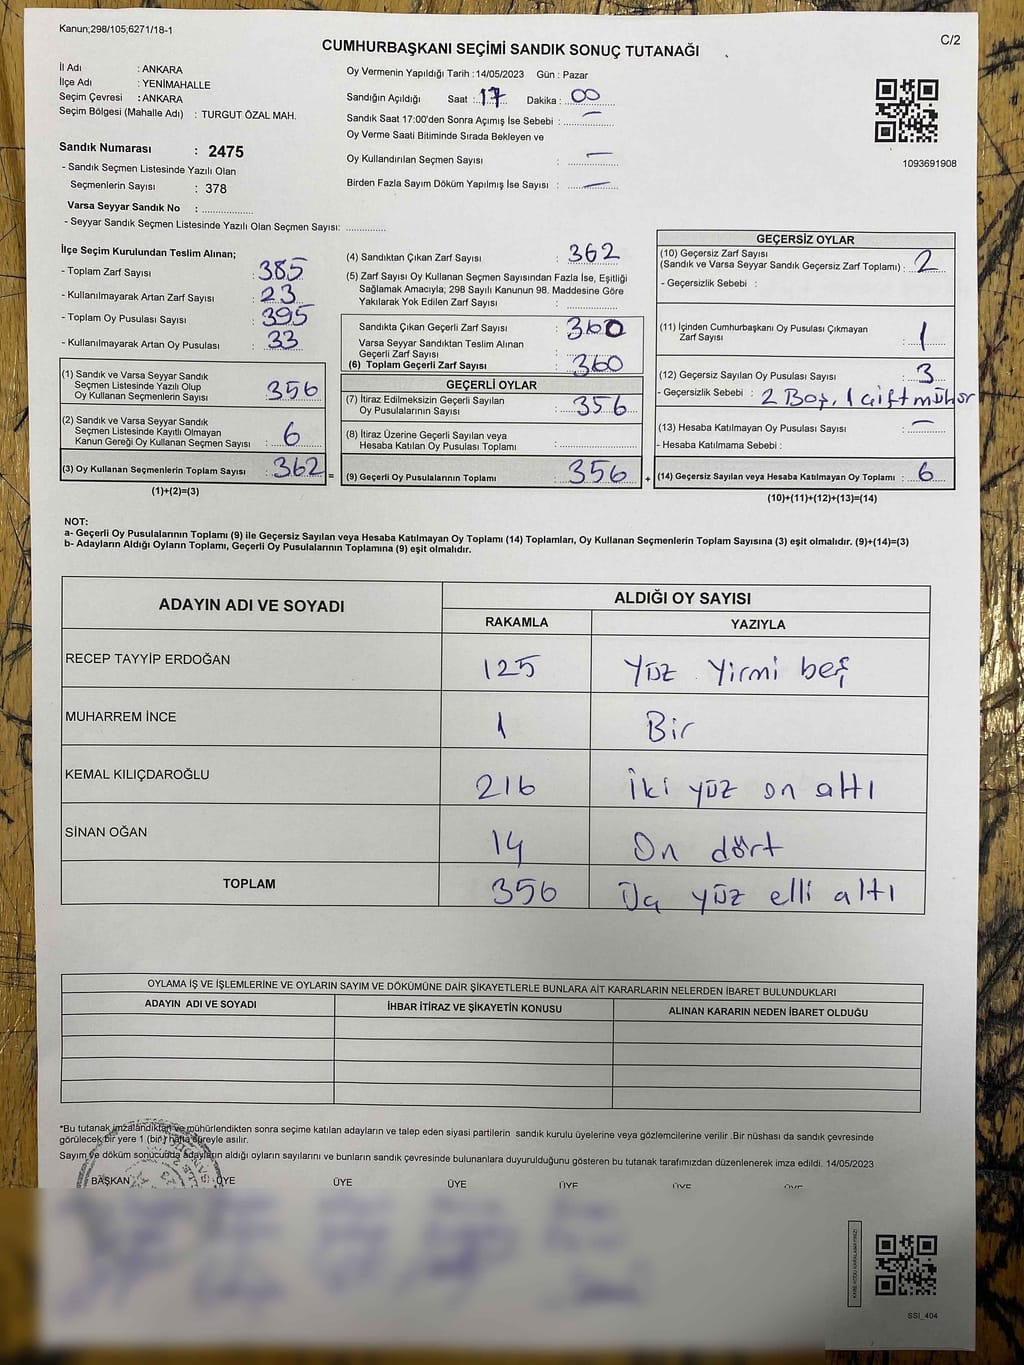 Kanun;298/105;6271/18-1
C/2
CUMHURBAŞKANI SEÇİMİ SANDIK SONUÇ TUTANAĞI
İl Adı : ANKARA
İlçe Adı : YENİMAHALLE
Seçim Çevresi : ANKARA
Seçim Bölgesi (Mahalle Adı) : TURGUT ÖZAL MAH.
Sandık Numarası : 2475
- Sandık Seçmen Listesinde Yazılı Olan
Seçmenlerin Sayısı : 378
Varsa Seyyar Sandık No : ..................
- Seyyar Sandık Seçmen Listesinde Yazılı Olan Seçmen Sayısı: ..............
Oy Vermenin Yapıldığı Tarih : 14/05/2023 Gün : Pazar
Sandığın Açıldığı Saat : 17 Dakika : 00
Sandık Saat 17:00'den Sonra Açımış İse Sebebi : —
Oy Verme Saati Bitiminde Sırada Bekleyen ve
Oy Kullandırılan Seçmen Sayısı : —
Birden Fazla Sayım Döküm Yapılmış İse Sayısı : —
1093691908
İlçe Seçim Kurulundan Teslim Alınan;
- Toplam Zarf Sayısı : 385
- Kullanılmayarak Artan Zarf Sayısı : 23
- Toplam Oy Pusulası Sayısı : 395
- Kullanılmayarak Artan Oy Pusulası : 33
(1) Sandık ve Varsa Seyyar Sandık
Seçmen Listesinde Yazılı Olup
Oy Kullanan Seçmenlerin Sayısı : 356
(2) Sandık ve Varsa Seyyar Sandık
Seçmen Listesinde Kayıtlı Olmayan
Kanun Gereği Oy Kullanan Seçmen Sayısı : 6
(3) Oy Kullanan Seçmenlerin Toplam Sayısı : 362 =
(1)+(2)=(3)
(4) Sandıktan Çıkan Zarf Sayısı : 362
(5) Zarf Sayısı Oy Kullanan Seçmen Sayısından Fazla İse, Eşitliği
Sağlamak Amacıyla; 298 Sayılı Kanunun 98. Maddesine Göre
Yakılarak Yok Edilen Zarf Sayısı : ..................
Sandıkta Çıkan Geçerli Zarf Sayısı : 360
Varsa Seyyar Sandıktan Teslim Alınan
Geçerli Zarf Sayısı : ..................
(6) Toplam Geçerli Zarf Sayısı : 360
GEÇERLİ OYLAR
(7) İtiraz Edilmeksizin Geçerli Sayılan
Oy Pusulalarının Sayısı : 356
(8) İtiraz Üzerine Geçerli Sayılan veya
Hesaba Katılan Oy Pusulası Toplamı : ..................
(9) Geçerli Oy Pusulalarının Toplamı : 356 +
GEÇERSİZ OYLAR
(10) Geçersiz Zarf Sayısı
(Sandık ve Varsa Seyyar Sandık Geçersiz Zarf Toplamı) : 2
- Geçersizlik Sebebi :
(11) İçinden Cumhurbaşkanı Oy Pusulası Çıkmayan
Zarf Sayısı : 1
(12) Geçersiz Sayılan Oy Pusulası Sayısı : 3
- Geçersizlik Sebebi : 2 Boş, 1 çift mühür
(13) Hesaba Katılmayan Oy Pusulası Sayısı : —
- Hesaba Katılmama Sebebi :
(14) Geçersiz Sayılan veya Hesaba Katılmayan Oy Toplamı : 6
(10)+(11)+(12)+(13)=(14)
NOT:
a- Geçerli Oy Pusulalarının Toplamı (9) ile Geçersiz Sayılan veya Hesaba Katılmayan Oy Toplamı (14) Toplamları, Oy Kullanan Seçmenlerin Toplam Sayısına (3) eşit olmalıdır. (9)+(14)=(3)
b- Adayların Aldığı Oyların Toplamı, Geçerli Oy Pusulalarının Toplamına (9) eşit olmalıdır.
ADAYIN ADI VE SOYADI ALDIĞI OY SAYISI
RAKAMLA YAZIYLA
RECEP TAYYİP ERDOĞAN 125 Yüz Yirmi beş
MUHARREM İNCE 1 Bir
KEMAL KILIÇDAROĞLU 216 iki yüz on altı
SİNAN OĞAN 14 On dört
TOPLAM 356 Üç yüz elli altı
OYLAMA İŞ VE İŞLEMLERİNE VE OYLARIN SAYIM VE DÖKÜMÜNE DAİR ŞİKAYETLERLE BUNLARA AİT KARARLARIN NELERDEN İBARET BULUNDUKLARI
ADAYIN ADI VE SOYADI İHBAR İTİRAZ VE ŞİKAYETİN KONUSU ALINAN KARARIN NEDEN İBARET OLDUĞU
*Bu tutanak imzalandıktan ve mühürlendikten sonra seçime katılan adayların ve talep eden siyasi partilerin sandık kurulu üyelerine veya gözlemcilerine verilir .Bir nüshası da sandık çevresinde
görülecek bir yere 1 (bir) hafta süreyle asılır.
Sayım ve döküm sonucunda adayların aldığı oyların sayılarını ve bunların sandık çevresinde bulunanlara duyurulduğunu gösteren bu tutanak tarafımızdan düzenlenerek imza edildi. 14/05/2023
BAŞKAN ÜYE ÜYE ÜYE ÜYE ÜYE ÜYE
SSİ_404